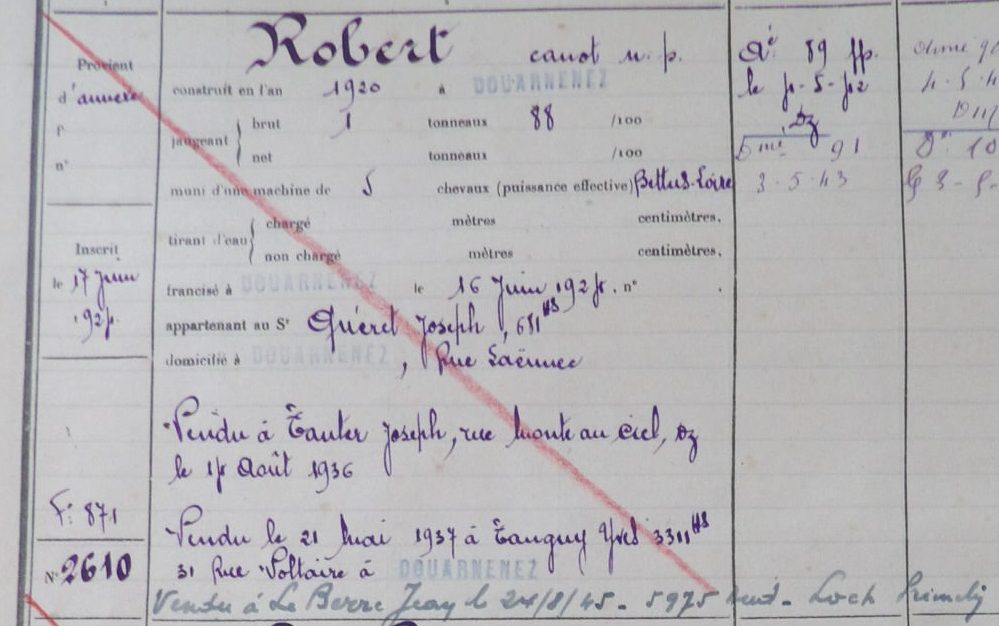 Provient
d'annexe
f°
n°
Inscrit
le 17 Juin
F: 871
N° 2610
Robert canot n.p.
construit en l'an 1920 à DOUARNENEZ
jaugeant
brut 1 tonneaux 88 /100
net tonneaux /100
muni d'une machine de 5 chevaux (puissance effective) Bettus-Loire
tirant d'eau
chargé mètres centimètres.
non chargé mètres centimètres.
francisé à DOUARNENEZ le 16 Juin n° .
appartenant au Sr Quéret Joseph, 681 HS
domicilié à DOUARNENEZ, Rue Laënnec
Vendu à Tanter Joseph, rue Monte au Ciel, Dz
le Août 1936
Vendu le 21 Mai 1937 à Tanguy Yves 3311 HS
31 Rue Voltaire à DOUARNENEZ
Vendu à Le Berre Jean le 24/8/45 - 5975 - Loch
89
le
Dz
91
3.5.43
10